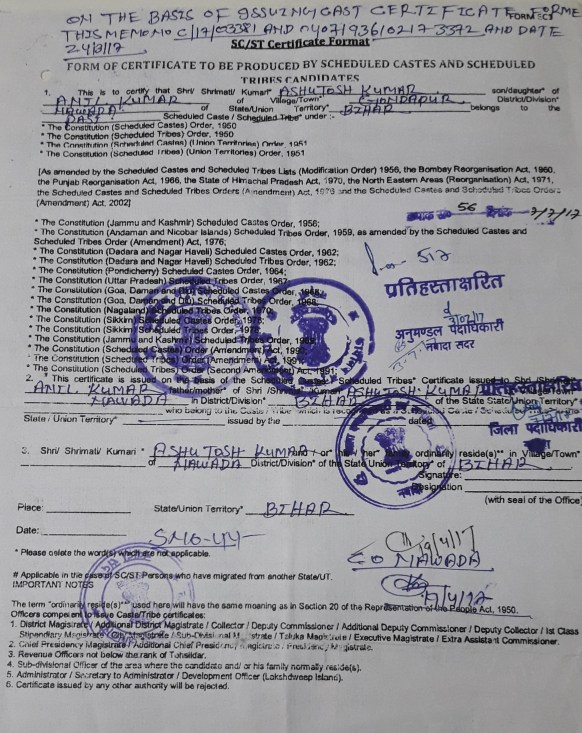 ON THE BASIS OF ISSUING CAST CERTIFICATE FORME
FORM-
THIS MEMO NO C/17/03381 AND 04071936/0217 3372 AND DATE
24/3/17
SC/ST Certificate Format
FORM OF CERTIFICATE TO BE PRODUCED BY SCHEDULED CASTES AND SCHEDULED
TRIBES CANDIDATES
1. This is to certify that Shri/ Shrimati/ Kumari* ASHUTOSH KUMAR son/daughter* of
ANIL KUMAR of Village/Town* District/Division*
NAWADA of State/Union Territory* BIHAR belongs to the
Scheduled Caste / Scheduled Tribe* under :-
* The Constitution (Scheduled Castes) Order, 1950
* The Constitution (Scheduled Tribes) Order, 1950
* The Constitution (Scheduled Castes) (Union Territories) Order, 1951
* The Constitution (Scheduled Tribes) (Union Territories) Order, 1951
[As amended by the Scheduled Castes and Scheduled Tribes Lists (Modification Order) 1956, the Bombay Reorganisation Act, 1960,
the Punjab Reorganisation Act, 1966, the State of Himachal Pradesh Act, 1970, the North Eastern Areas (Reorganisation) Act, 1971,
the Scheduled Castes and Scheduled Tribes Orders (Amendment) Act, 1976 and the Scheduled Castes and Scheduled Tribes Orders
(Amendment) Act, 2002]
56
* The Constitution (Jammu and Kashmir) Scheduled Castes Order, 1956;
* The Constitution (Andaman and Nicobar Islands) Scheduled Tribes Order, 1959, as amended by the Scheduled Castes and
Scheduled Tribes Order (Amendment) Act, 1976;
* The Constitution (Dadara and Nagar Haveli) Scheduled Castes Order, 1962;
* The Constitution (Dadara and Nagar Haveli) Scheduled Tribes Order, 1962;
* The Constitution (Pondicherry) Scheduled Castes Order, 1964;
* The Constitution (Uttar Pradesh) Scheduled Tribes Order, 1967;
* The Constitution (Goa, Daman and Diu) Scheduled Castes Order, 1968;
* The Constitution (Goa, Daman and Diu) Scheduled Tribes Order, 1968;
* The Constitution (Nagaland) Scheduled Tribes Order, 1970;
* The Constitution (Sikkim) Scheduled Castes Order, 1978;
* The Constitution (Sikkim) Scheduled Tribes Order, 1978;
* The Constitution (Jammu and Kashmir) Scheduled Tribes Order, 1989;
* The Constitution (Scheduled Castes) Order (Amendment) Act, 1990;
* The Constitution (Scheduled Tribes) Order (Amendment) Act, 1991;
* The Constitution (Scheduled Tribes) Order (Second Amendment) Act, 1991;
प्रतिहस्ताक्षरित
अनुमण्डल पदाधिकारी
नवादा सदर
2. * This certificate is issued on the basis of the Scheduled Castes/ Scheduled Tribes* Certificate issued to Shri /Shrimati*
ANIL KUMAR father/mother* of Shri /Shrimati /Kumari ASHUTOSH KUMAR
NAWADA in District/Division* BIHAR of the State State/Union Territory*
who belong to the Caste / Tribe* which is recognised as a Scheduled Caste / Scheduled
State / Union Territory* issued by the dated
जिला पदाधिकारी
3. Shri/ Shrimati/ Kumari * ASHUTOSH KUMAR and / or his / her family ordinarily reside(s)** in Village/Town*
of NAWADA District/Division* of the State Union Territory* of BIHAR
Signature:
Designation
(with seal of the Office)
Place: State/Union Territory* BIHAR
Date:
* Please delete the word(s) which are not applicable.
CO NAWADA
# Applicable in the case of SC/ST Persons who have migrated from another State/UT.
IMPORTANT NOTES
The term "ordinarily reside(s)** used here will have the same meaning as in Section 20 of the Representation of the People Act, 1950.
Officers competent to issue Caste/Tribe certificates:
1. District Magistrate / Additional District Magistrate / Collector / Deputy Commissioner / Additional Deputy Commissioner / Deputy Collector / 1st Class
Stipendiary Magistrate / City Magistrate / Sub-Divisional Magistrate / Taluka Magistrate / Executive Magistrate / Extra Assistant Commissioner.
2. Chief Presidency Magistrate / Additional Chief Presidency Magistrate / Presidency Magistrate.
3. Revenue Officers not below the rank of Tahsildar.
4. Sub-divisional Officer of the area where the candidate and/ or his family normally reside(s).
5. Administrator / Secretary to Administrator / Development Officer (Lakshdweep Island).
6. Certificate issued by any other authority will be rejected.